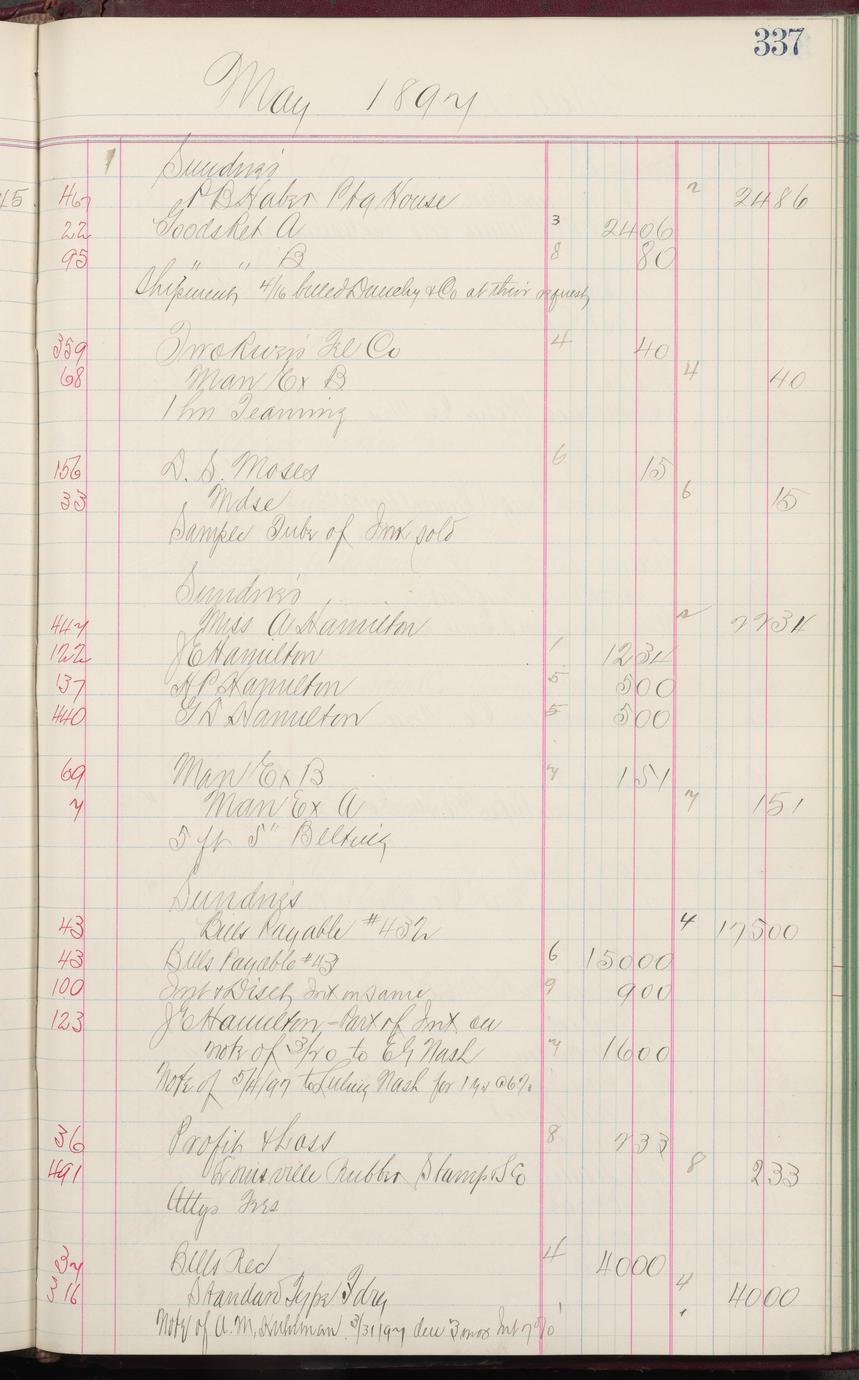 337
May 1897
1 Sundries
45
467 P B Haber Ptg House 2 2486
22 Goods Ret A 3 2406
95 " " B 8 80
Shipment 4/16 billed Dauchy & Co at their request
359 Two Rivers Co 4 40
68 Man Ex B 4 40
1 hr Teaming
156 D. S. Moses 6 15
33 Mdse 6 15
Sample Tube of Ink sold
Sundries
447 Miss A Hamilton 2 2234
122 J E Hamilton 1 1234
137 H P Hamilton 5 500
440 G D Hamilton 5 500
69 Man Ex B 7 151
7 Man Ex A 7 151
5 ft 5" Belting
Sundries
43 Bills Payable #432 4 17500
43 Bills Payable #43 6 15000
100 Int & Disct, Int on same 9 900
123 J E Hamilton - Part of Int on
note of 3/20 to E G Nash 7 1600
Note of 5/4/97 to Nash for 1 yr @6%
36 Profit & Loss 8 233
491 Louisville Rubber Stamp & S Co 8 233
Attys Fees
37 Bills Rec 4 4000
316 Standard Type Fdry 4 4000
Note of A. M. 3/31/97 due 3 mos Int 7%